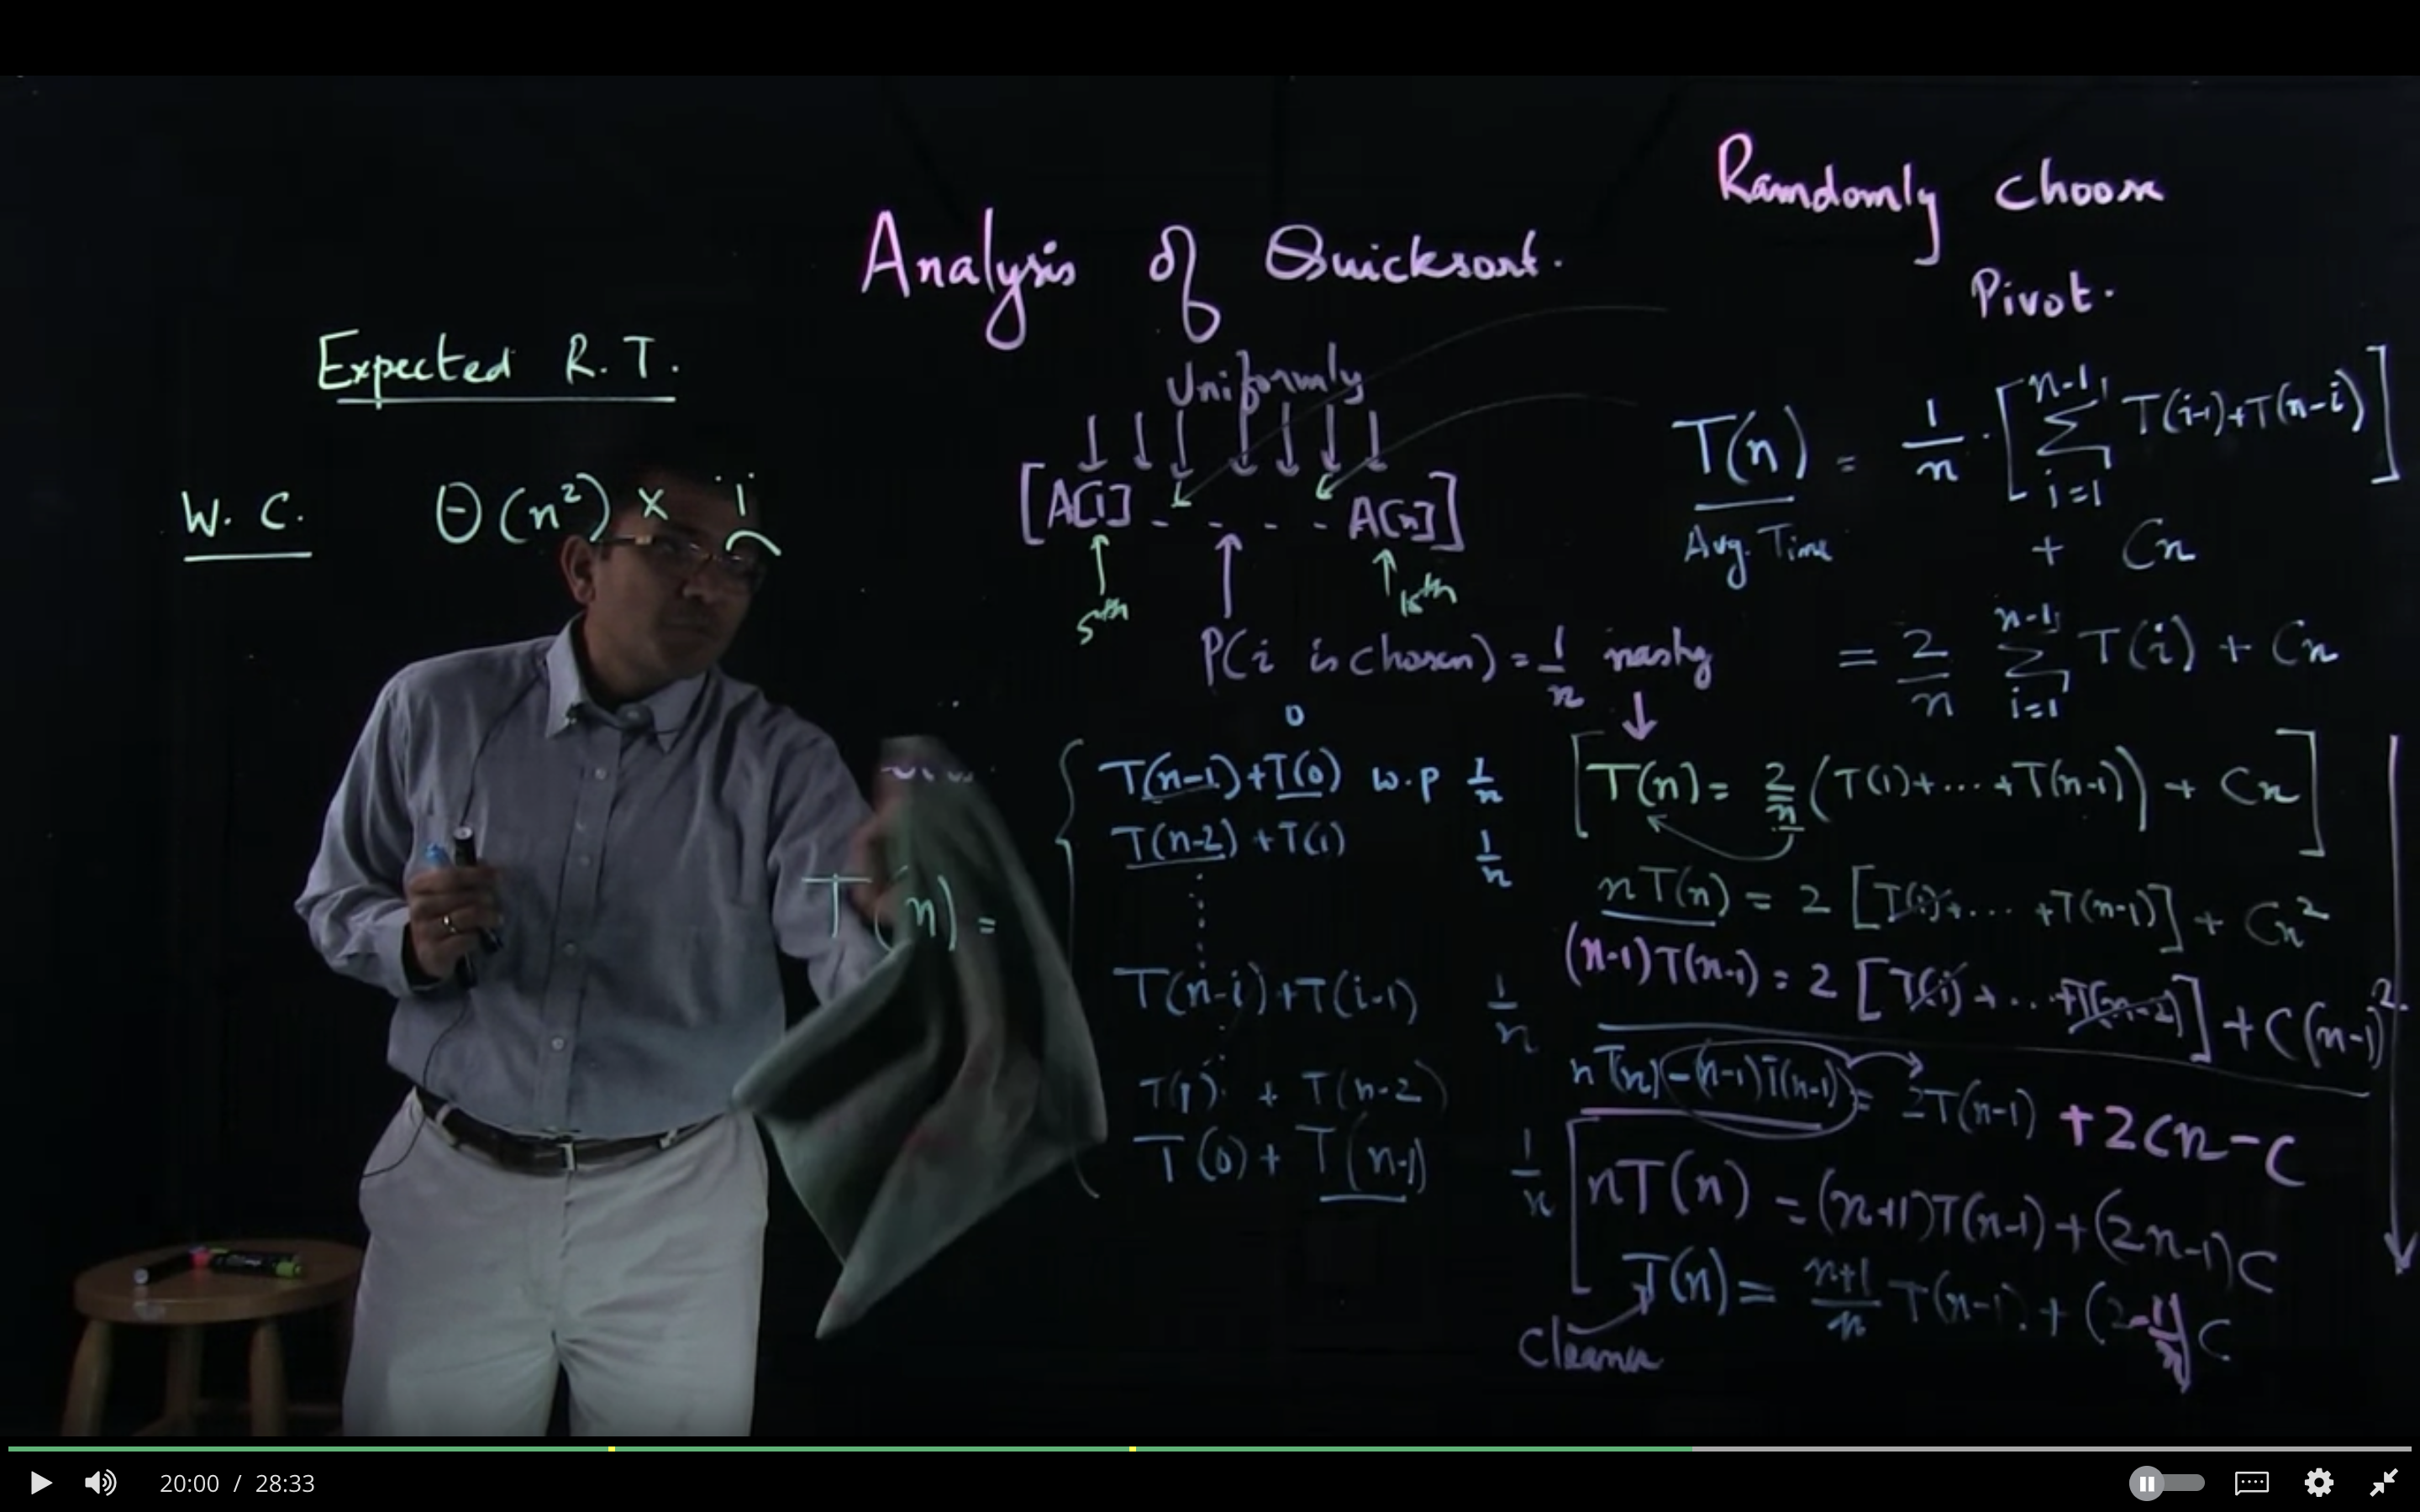 Analysis of Quicksort.
Randomly choose
Pivot.
Expected R.T.
W. C. Θ(n²) ×
Uniformly
[A[1] - - - - A[n]]
5th
P(i is chosen) = 1/n
nasty
0
T(n) =
T(n-1)+T(0) w.p 1/n
T(n-2)+T(1) 1/n
T(n-i)+T(i-1) 1/n
T(1) + T(n-2)
T(0) + T(n-1) 1/n
T(n) = 1/n · [∑ i=1 n-1 T(i-1)+T(n-i)]
Avg. Time + Cn
= 2/n ∑ i=1 n-1 T(i) + Cn
[T(n) = 2/n (T(1)+...+T(n-1)) + Cn]
nT(n) = 2 [T(1)+... +T(n-1)] + Cn²
(n-1)T(n-1) = 2 [T(1)+...+T(n-2)] + C(n-1)²
nT(n)-(n-1)T(n-1) = 2T(n-1) +2Cn-C
nT(n) = (n+1)T(n-1)+(2n-1)C
T(n) = n+1/n T(n-1) + (2-1/n)C
Cleaner
20:00 / 28:33